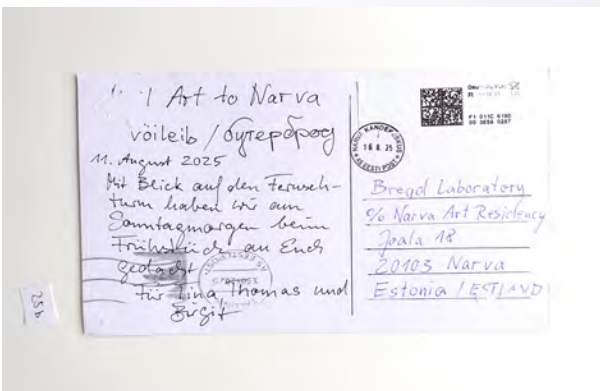 Mail Art to Narva
võileib / бутерброд
11. August 2025
Mit Blick auf den Fernseh-
turm haben wir am
Sonntagmorgen beim
Frühstück an Euch
gedacht
Für Tina Thomas und
Birgit
NARVA KANDEPUNKT
18.8.25
AS EESTI POST
F1 011C 6190
00 3E59 0287
Bread Laboratory
c/o Narva Art Residency
Joala 18
20103 Narva
Estonia / ESTLAND
25b